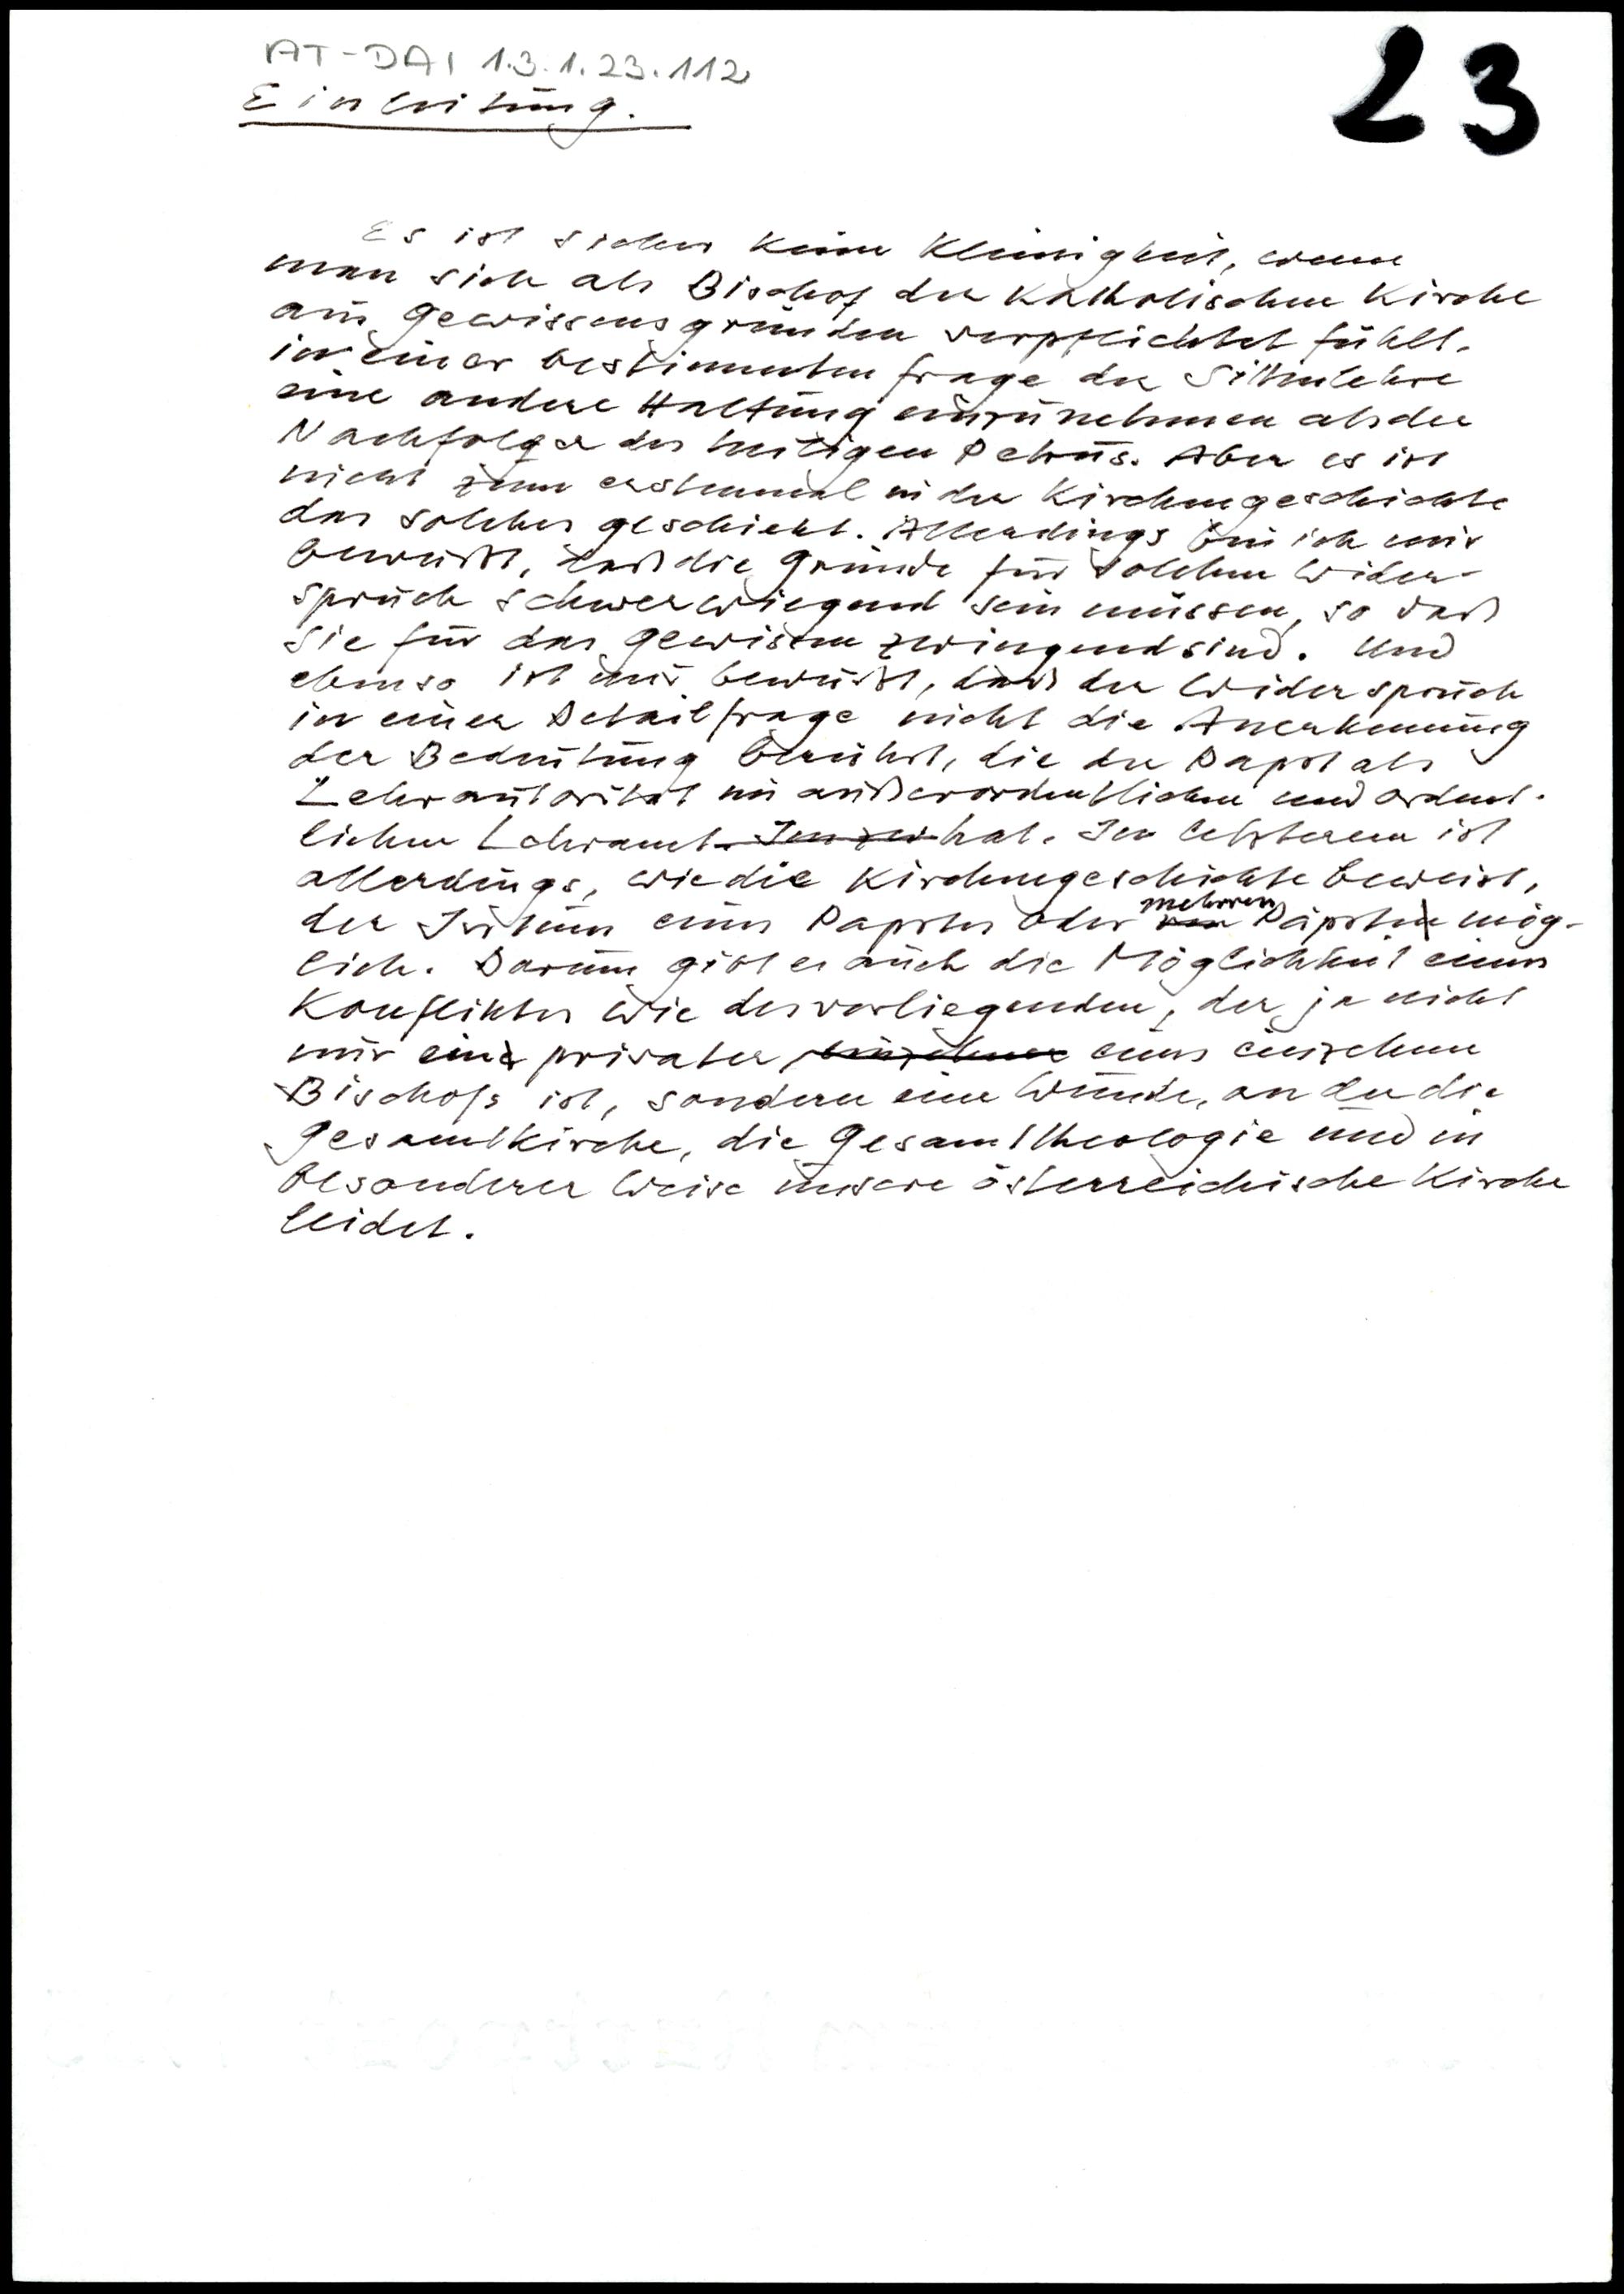 AT-DAI 1.3.1.23.112
23
Einleitung.
Es ist sicher keine Kleinigkeit, wenn
man sich als Bischof der katholischen Kirche
aus Gewissensgründen verpflichtet fühlt,
in einer bestimmten Frage der Sittenlehre
eine andere Haltung einzunehmen als der
Nachfolger des heiligen Petrus. Aber es ist
nicht zum erstenmal in der Kirchengeschichte
das solches geschieht. Allerdings bin ich mir
bewußt, daß die Gründe für solchen Wider-
spruch schwerwiegend sein müssen, so daß
sie für das Gewissen zwingend sind. Und
ebenso ist mir bewußt, daß der Widerspruch
in einer Detailfrage nicht die Anerkennung
der Bedeutung berührt, die der Papst als
Lehrautorität im außerordentlichen und ordent-
lichen Lehramt hat. Im letzteren ist
allerdings, wie die Kirchengeschichte beweist,
der Irrtum eines Papstes oder mehrerer Päpste mög-
lich. Darum gibt es auch die Möglichkeit eines
Konfliktes wie des vorliegenden, der ja nicht
nur ein privater eines einzelnen
Bischofs ist, sondern eine Wunde, an der die
Gesamtkirche, die Gesamttheologie und in
besonderer Weise unsere österreichische Kirche
leidet.